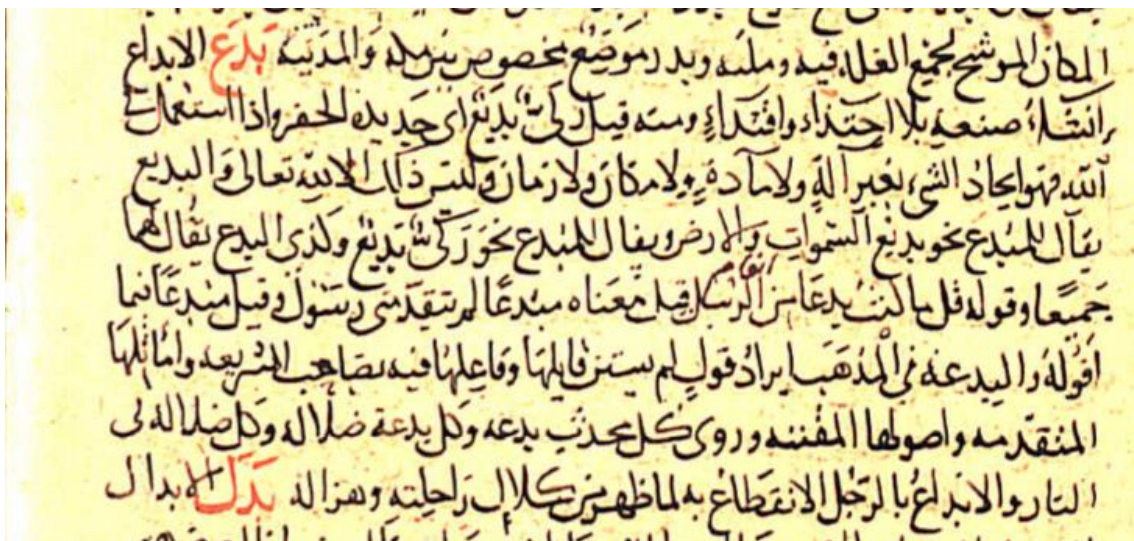 المكان المرشح لجميع الغلة فيه وملئه وبدر موضع مخصوص بين مكة والمدينة بدع الابداع
انشاء صنعة بلا احتذاء واقتداء ومنه قيل ركية بديع اى جديدة الحفر واذا استعمل فى
الله فهو ايجاد الشى بغير آلة ولا مادة ولا مكان ولا زمان وليس ذلك الا لله تعالى والبديع
يقال للمبدع نحو بديع السموات والارض ويقال للمبدع نحو ركية بديع وكذى البدع يقال لهما
جميعا وقوله قل ما كنت بدعا من الرسل قيل معناه مبدعا لم يتقدمنى رسول وقيل مبدعا فيما
اقوله والبدعة فى المذهب ايراد قول لم يستن قايلها وفاعلها فيه بصاحب الشريعة واماثلها
المتقدمة واصولها المقننه وروى كل محدث بدعة وكل بدعة ضلاله وكل ضلاله فى
النار والابداع بالرجل الانقطاع به لما ظهر من كلال راحلته وهزاله بدل الابدال